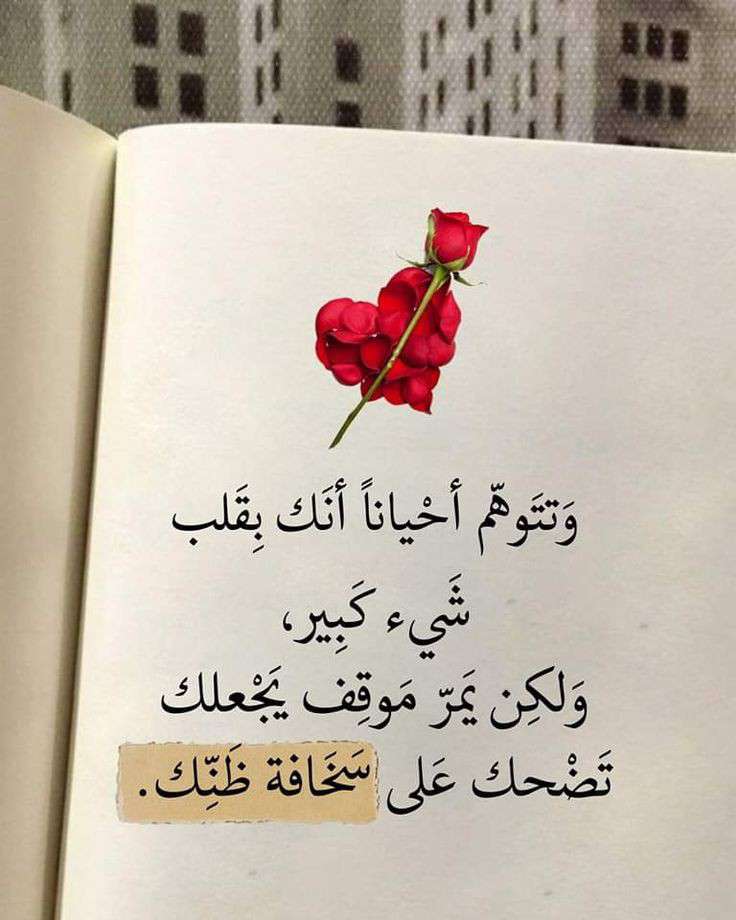 وَتتَوهّم أحْياناً أنَك بِقَلب
شَيء كَبِير،
وَلكِن يَمرّ مَوقِف يَجْعلك
تَضْحك عَلى سَخَافة ظَنِّك.